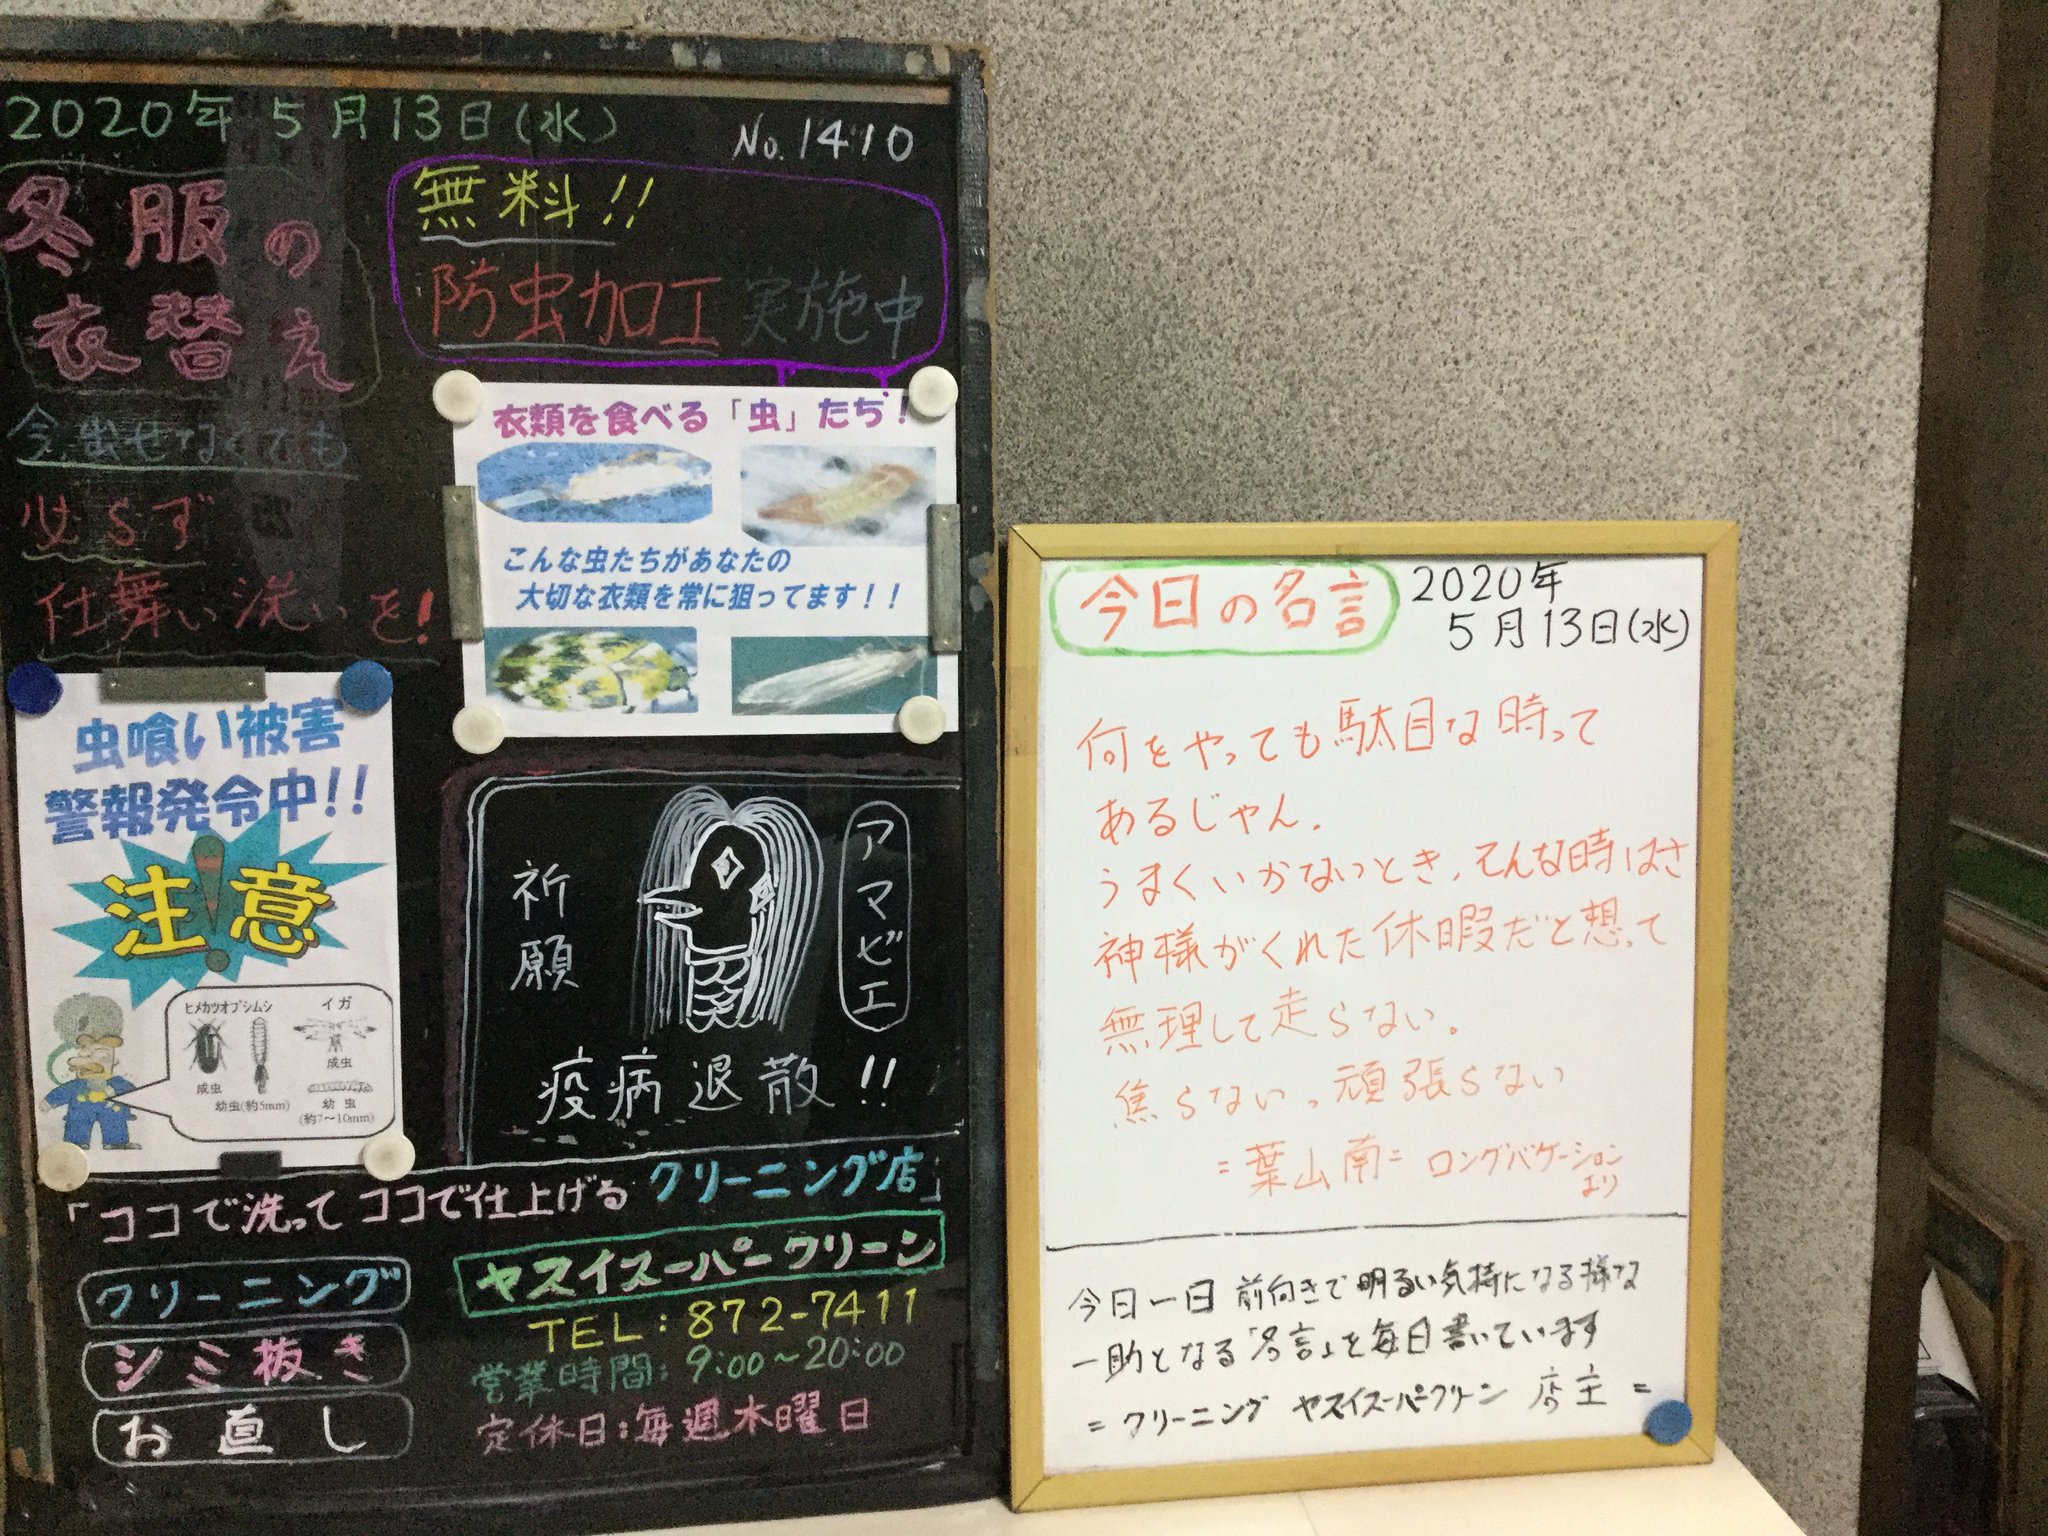 2020年 5月13日(水)
No.1410
冬服の
衣替え
無料!!
防虫加工実施中
今、出せなくても
必らず
仕舞い洗いを!
衣類を食べる「虫」たち!
こんな虫たちがあなたの
大切な衣類を常に狙ってます!!
虫喰い被害
警報発令中!!
注!意
ヒメカツオブシムシ
イガ
成虫
成虫
幼虫(約5mm)
幼虫
(約7〜10mm)
祈願
アマビエ
疫病退散!!
「ココで洗ってココで仕上げるクリーニング店」
クリーニング
シミ抜き
お直し
ヤスイスーパークリーン
TEL:872-7411
営業時間:9:00~20:00
定休日:毎週木曜日
今日の名言
2020年
5月13日(水)
何をやっても駄目な時って
あるじゃん.
うまくいかないとき,そんな時はさ
神様がくれた休暇だと想って
無理して走らない。
焦らない。頑張らない
=葉山南= ロングバケーション
より
今日一日 前向きで明るい気持になる様な
一助となる「名言」を毎日書いています
=クリーニング ヤスイスーパークリーン 店主=